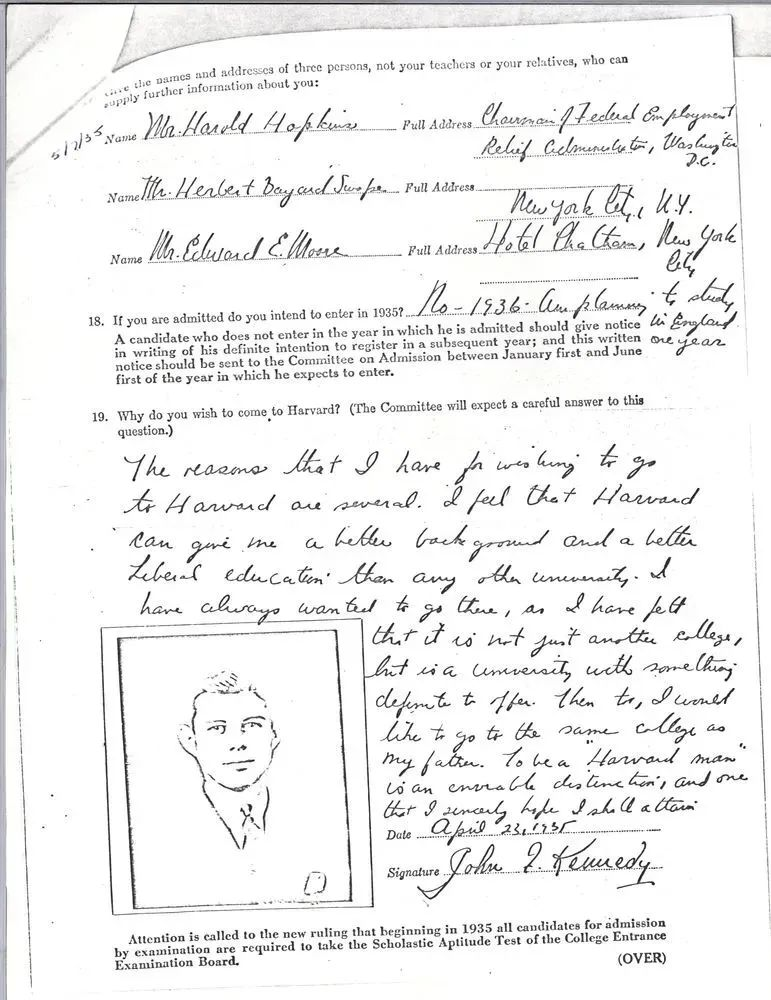 Give the names and addresses of three persons, not your teachers or your relatives, who can
supply further information about you:
5/7/35
Name Mr. Harold Hopkins Full Address Chairman of Federal Employment
Relief Administration, Washington
D.C.
Name Mr. Herbert Bayard Swope Full Address
New York City, N.Y.
Name Mr. Edward E. Moore Full Address Hotel Chatham, New York
City
18. If you are admitted do you intend to enter in 1935? No - 1936 - Am planning to study
in England
one year
A candidate who does not enter in the year in which he is admitted should give notice
in writing of his definite intention to register in a subsequent year; and this written
notice should be sent to the Committee on Admission between January first and June
first of the year in which he expects to enter.
19. Why do you wish to come to Harvard? (The Committee will expect a careful answer to this
question.)
The reasons that I have for wishing to go
to Harvard are several. I feel that Harvard
can give me a better background and a better
liberal education than any other university. I
have always wanted to go there, as I have felt
that it is not just another college,
but is a university with something
definite to offer. Then to, I would
like to go to the same college as
my father. To be a "Harvard man"
is an enviable distinction, and one
that I sincerely hope I shall attain
Date April 23, 1935
Signature John F. Kennedy
Attention is called to the new ruling that beginning in 1935 all candidates for admission
by examination are required to take the Scholastic Aptitude Test of the College Entrance
Examination Board.
(OVER)